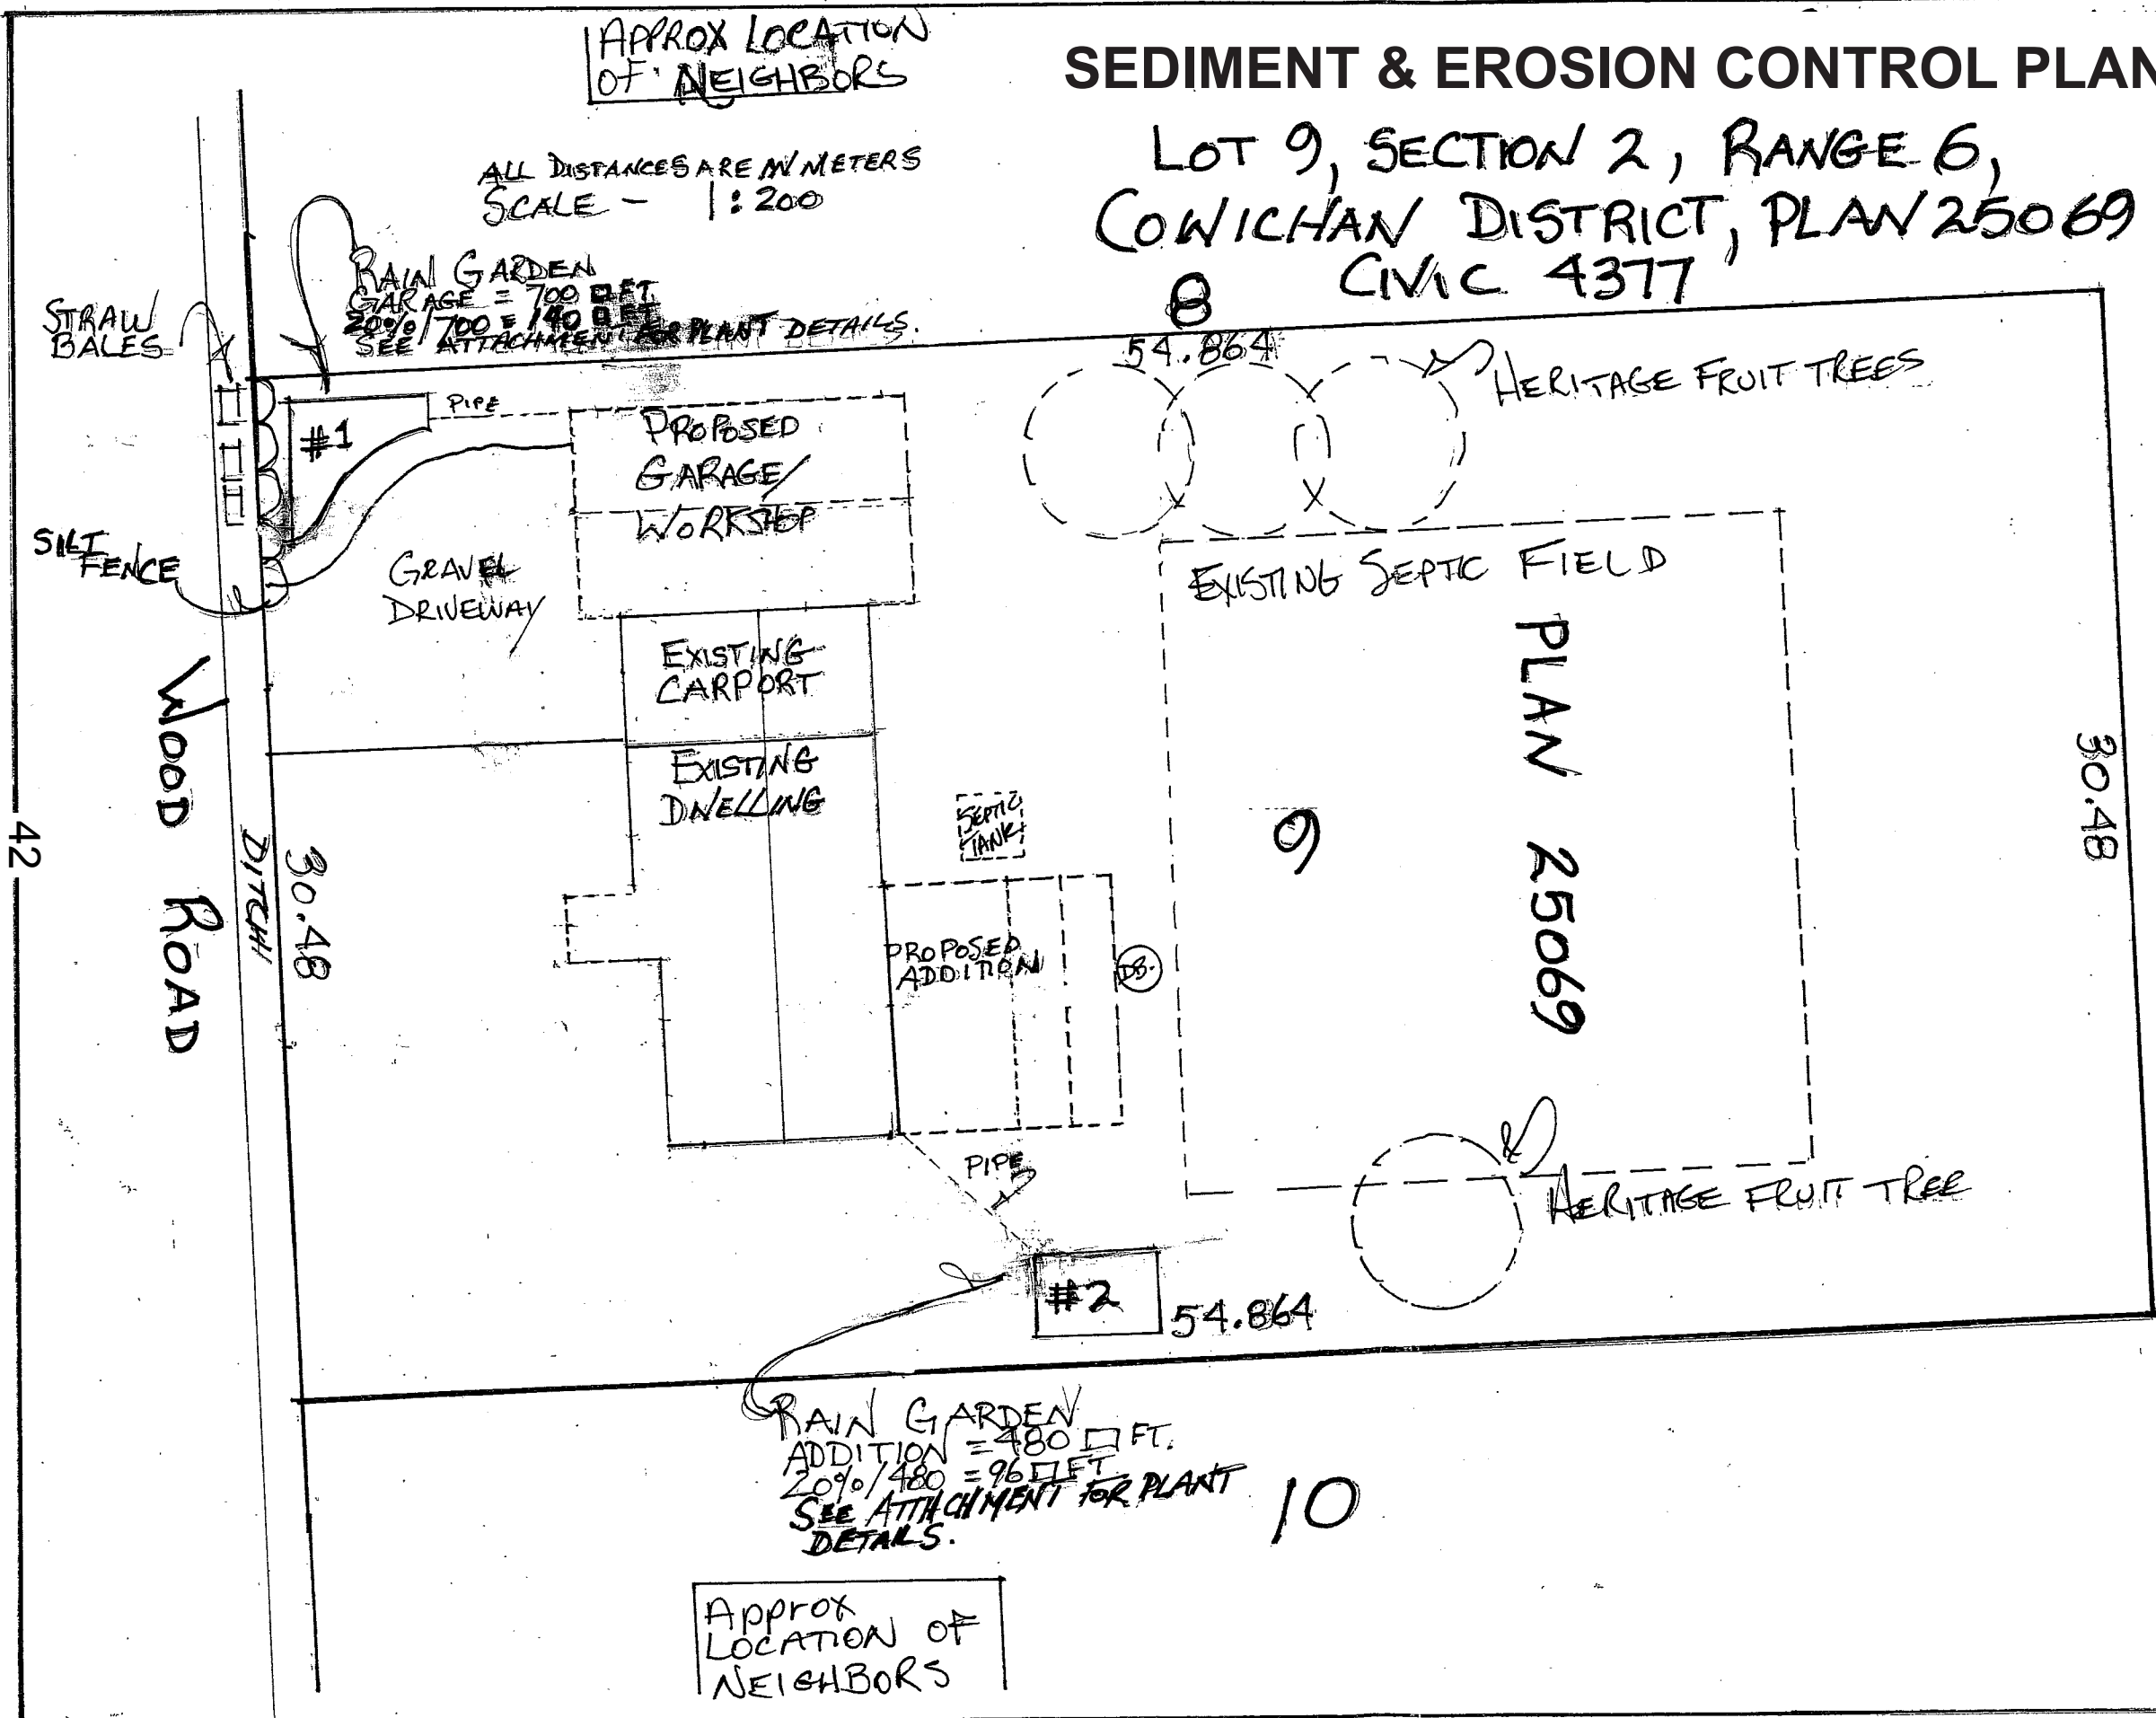 APPROX LOCATION
OF NEIGHBORS
SEDIMENT & EROSION CONTROL PLAN
LOT 9, SECTION 2, RANGE 6,
COWICHAN DISTRICT, PLAN 25069
CIVIC 4377
ALL DISTANCES ARE IN METERS
SCALE - 1:200
RAIN GARDEN
GARAGE = 700 □ FT.
20%/700 = 140 □ FT
SEE ATTACHMENT FOR PLANT DETAILS.
STRAW
BALES
8
54.864
HERITAGE FRUIT TREES
#1
PIPE
PROPOSED
GARAGE/
WORKSHOP
SILT
FENCE
GRAVEL
DRIVEWAY
EXISTING SEPTIC FIELD
EXISTING
CARPORT
EXISTING
DWELLING
SEPTIC
TANK
PLAN 25069
9
30.48
WOOD ROAD
DITCH
30.48
42
PROPOSED
ADDITION
DB.
PIPE
HERITAGE FRUIT TREE
#2
54.864
RAIN GARDEN
ADDITION = 480 □ FT.
20%/480 = 96 □ FT
SEE ATTHCHMENT FOR PLANT
DETAILS.
10
Approx
LOCATION OF
NEIGHBORS